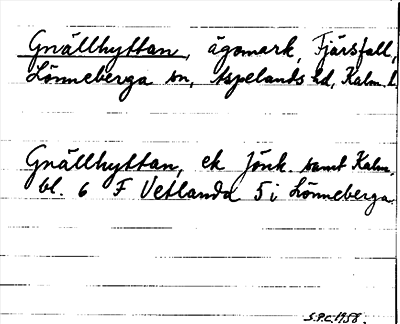 Gnällhyttan, ägomark, Fjärsfall,
Lönneberga sn, Aspelands hd, Kalm. l.
Gnällhyttan, ek Jönk. samt Kalm.
bl. 6 F Vetlanda 5 i Lönneberga.
S.P.C. 1958.